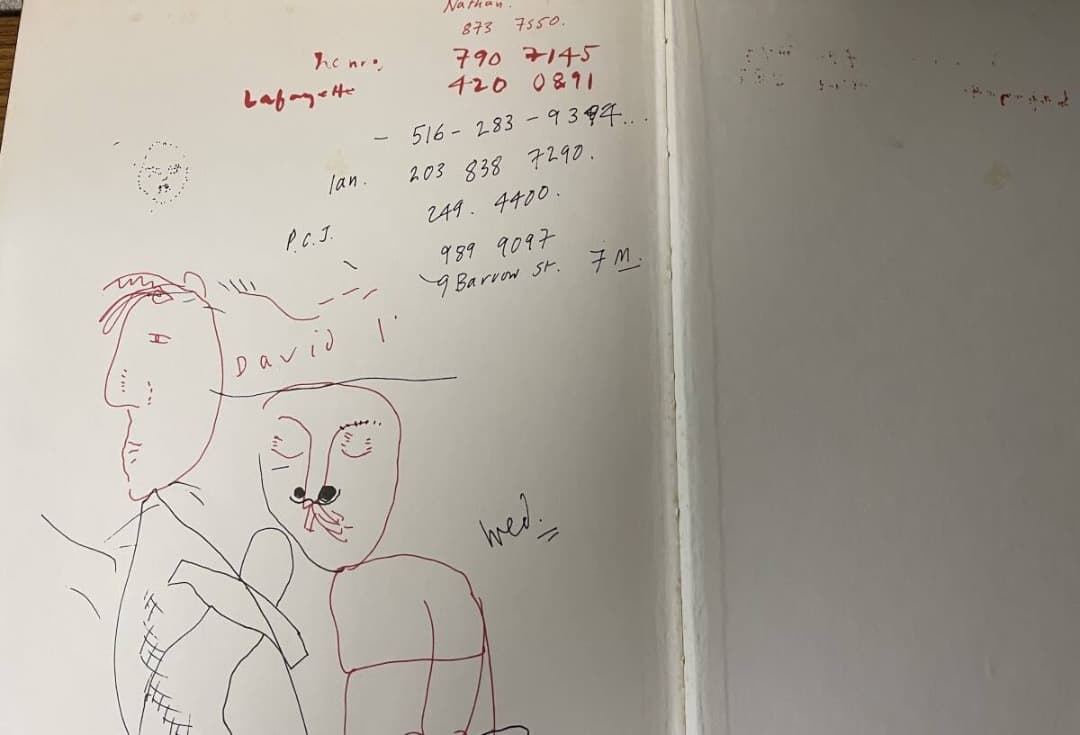 Nathan.
873 7550.
790 7145
Lafayette 420 0891
- 516-283-9394...
Ian. 203 838 7290.
249. 4400.
P.C.J.
989 9097
9 Barrow St. 7M.
David
Wed.